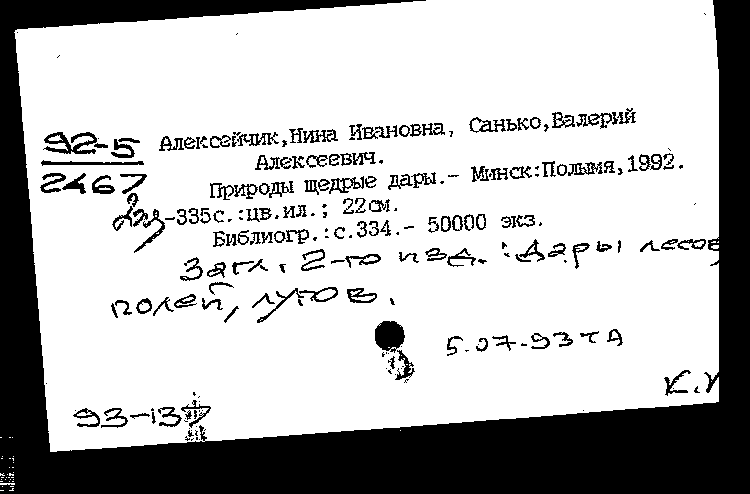 92-5
2467
Алексейчик,Нина Ивановна, Санько,Валерий
Алексеевич.
Природы щедрые дары.- Минск:Полымя,1992.
-335с.:цв.ил.; 22см.
Библиогр.:с.334.- 50000 экз.
Загл. 2-го изд.:Дары лесов
полей, лугов.
5.07-93 ТА
93-137